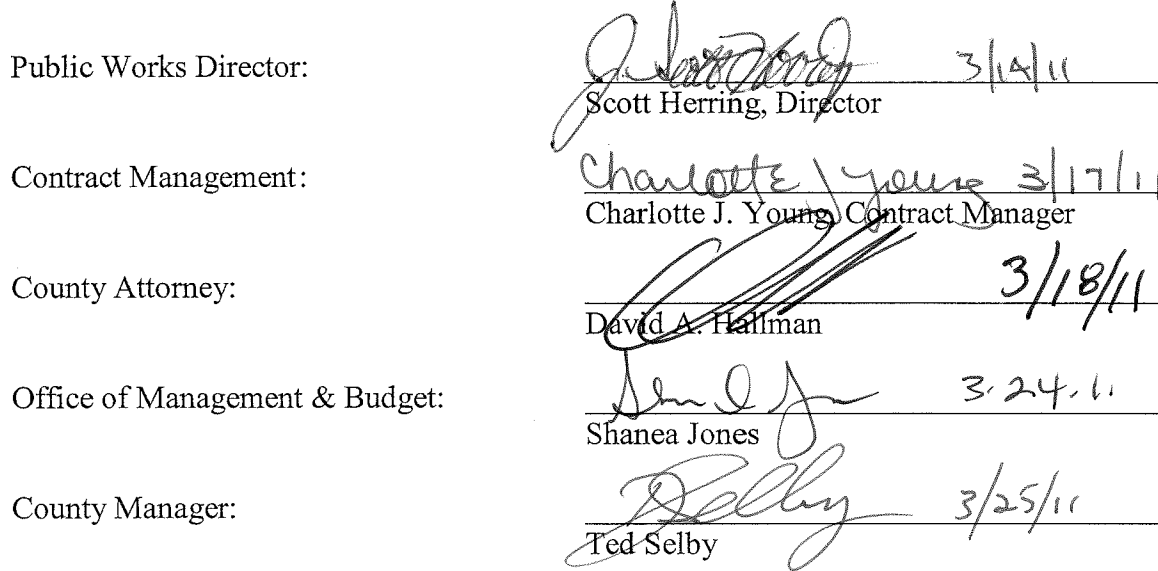 Public Works Director: 3/14/11
Scott Herring, Director
Contract Management: Charlotte J Young 3/17/11
Charlotte J. Young, Contract Manager
County Attorney: 3/18/11
David A. Hallman
Office of Management & Budget: 3.24.11
Shanea Jones
County Manager: Selby 3/25/11
Ted Selby